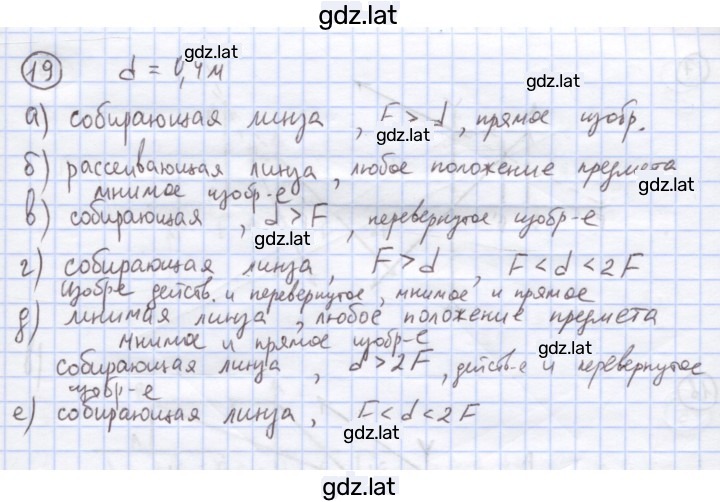 gdz.lat
gdz.lat
19 d = 0,4м gdz.lat
а) собирающая линза, F > d, прямое изобр.
gdz.lat
б) рассеивающая линза, любое положение предмета
мнимое изобр-е gdz.lat
в) собирающая, d > F, перевернутое изобр-е
gdz.lat
г) собирающая линза, F > d, F < d < 2F
Изобр-е действ. и перевернутое, мнимое и прямое
д) линимая линза, любое положение предмета
мнимое и прямое изобр-е gdz.lat
собирающая линза, d > 2F, действ-е и перевернутое
изобр-е
е) собирающая линза, F < d < 2F
gdz.lat
gdz.lat